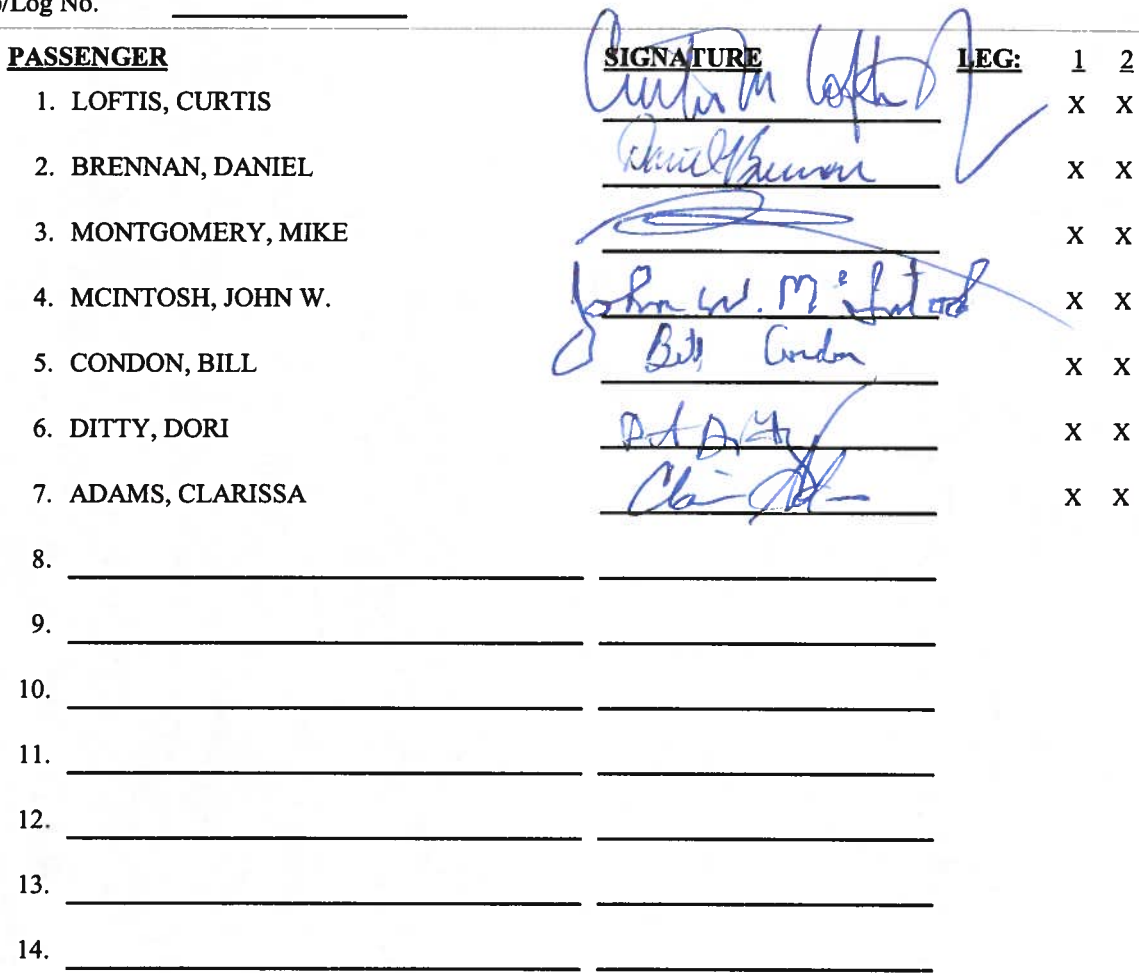 /Log No.
PASSENGER SIGNATURE LEG: 1 2
1. LOFTIS, CURTIS Curtis M Loftis X X
2. BRENNAN, DANIEL Daniel Brennan X X
3. MONTGOMERY, MIKE X X
4. MCINTOSH, JOHN W. John W. McIntosh X X
5. CONDON, BILL Bill Condon X X
6. DITTY, DORI X X
7. ADAMS, CLARISSA X X
8.
9.
10.
11.
12.
13.
14.